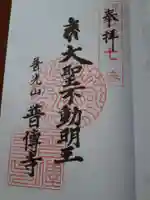 奉拝
大聖不動明王
普光山
普傳寺